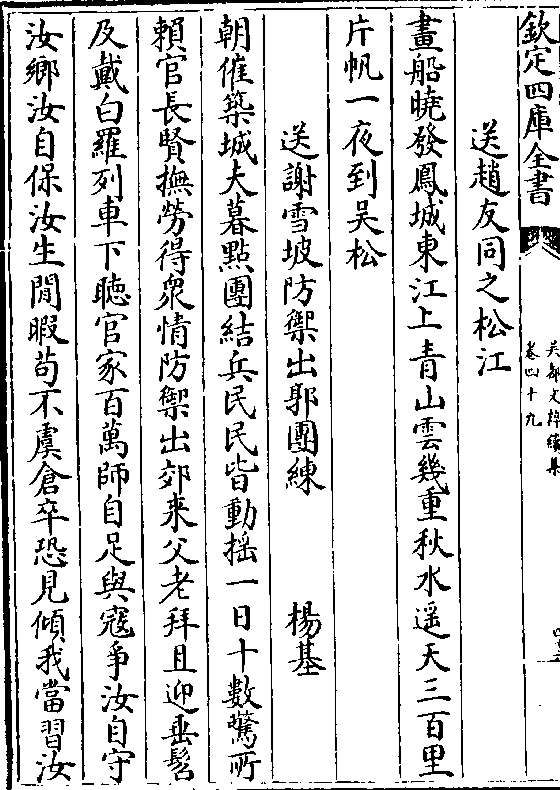 欽定四庫全書
吳都文粹續集
卷四十九
送趙友同之松江
畫船曉發鳳城東江上青山雲幾重秋水遥天三百里
片帆一夜到吴松
送謝雪坡防禦出郭團練 楊基
朝催築城夫暮點團結兵民民皆動揺一日十數驚所
賴官長賢撫勞得衆情防禦出郊来父老拜且迎垂髫
及戴白羅列車下聴官家百萬師自足與寇爭汝自守
汝鄉汝自保汝生閒暇苟不虞倉卒恐見傾我當習汝